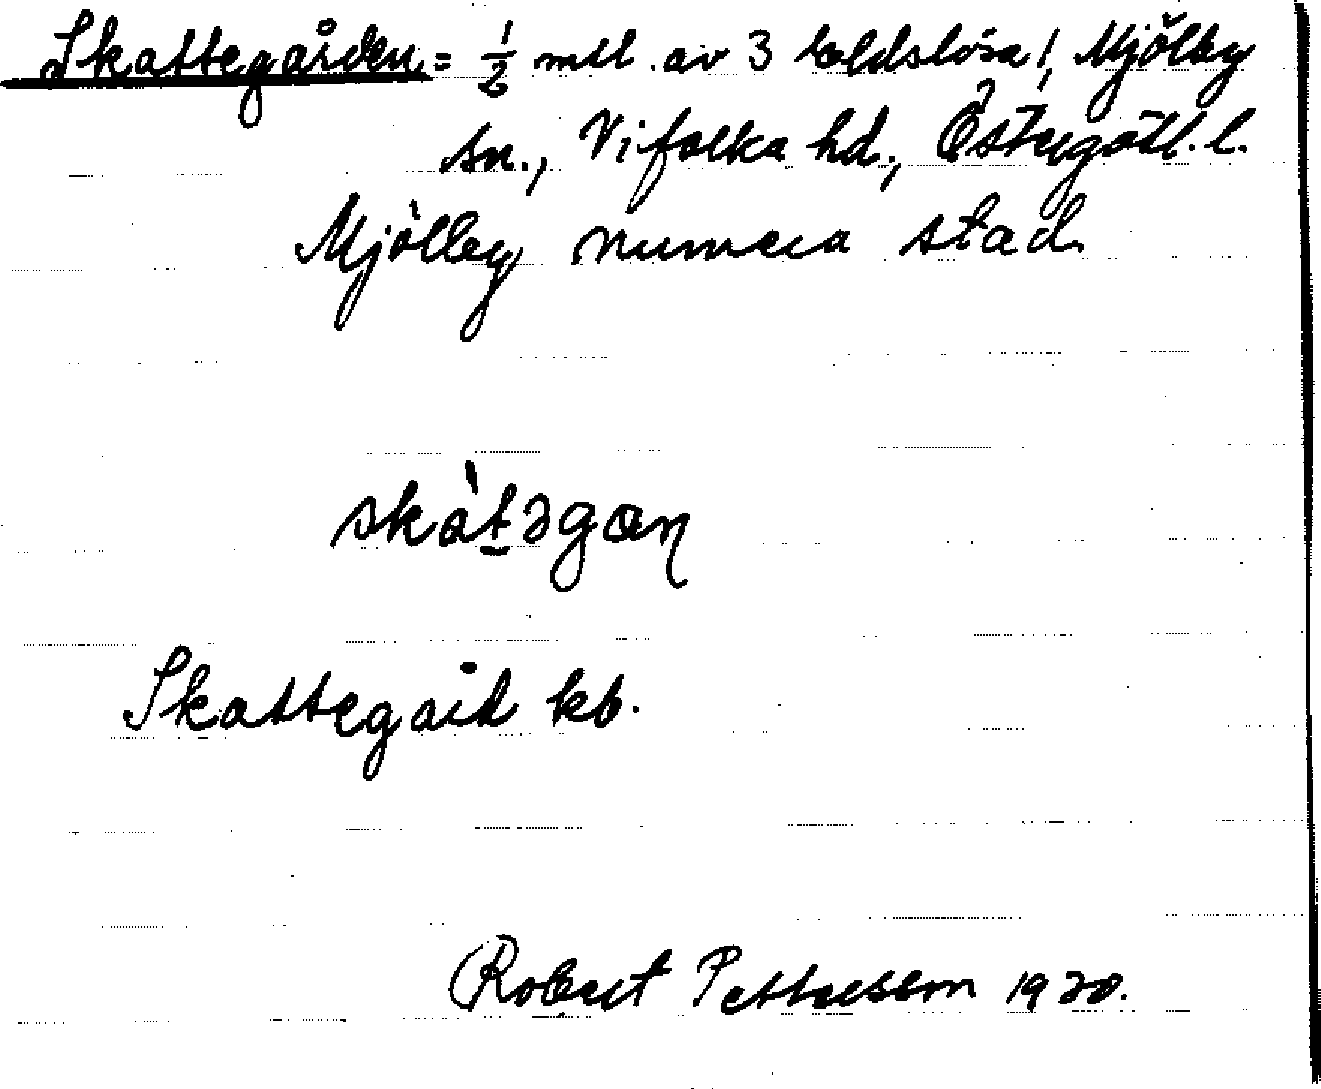 Skattegården = 1/2 mtl av 3 Eldslösa!, Mjölby
sn., Vifolka hd., Östergötl. l.
Mjölby numera stad
skàt̠əgɑɳ
Skattegård kb.
Robert Pettersson 1920.